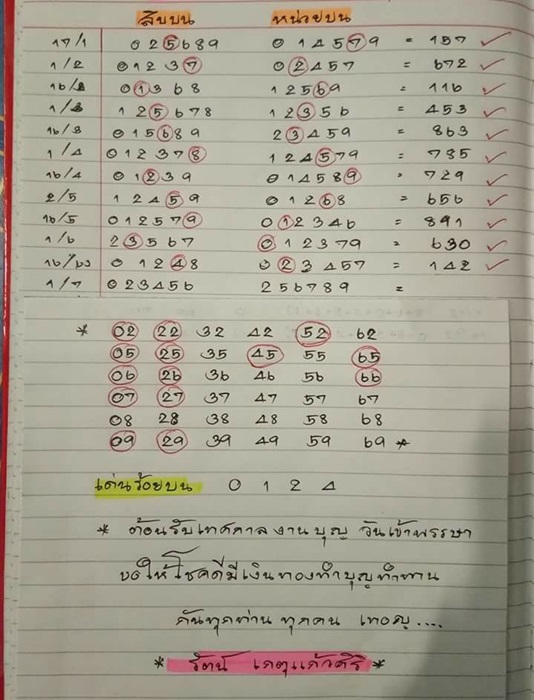 สิบบน หน่วยบน
17/1 025689 014579 = 157
1/2 01237 02457 = 672
16/2 01368 12569 = 116
1/3 125678 12356 = 453
16/3 015689 23459 = 863
1/4 012378 124579 = 785
16/4 01239 014589 = 729
2/5 12459 01268 = 656
16/5 012579 012346 = 891
1/6 23567 012379 = 630
16/6 01248 023457 = 142
1/7 023456 256789 =
* 02 22 32 42 52 62
05 25 35 45 55 65
06 26 36 46 56 66
07 27 37 47 57 67
08 28 38 48 58 68
09 29 39 49 59 69 *
เด่นร้อยบน 0 1 2 4
* ต้อนรับเทศกาลงานบุญ วันเข้าพรรษา
ขอให้โชคดีมีเงินทองทำบุญทำทาน
กันทุกท่าน ทุกคน เทอญ....
* รัตน์ เกตุแก้วคีรี *